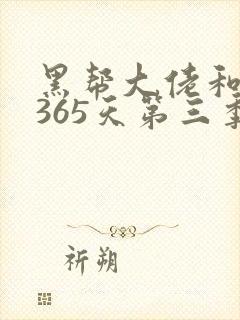 黑帮大佬和
365天第三季
祈朔